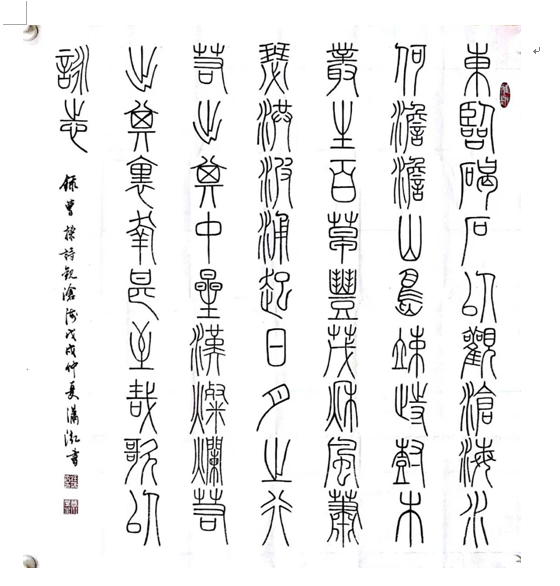 東臨碣石以觀滄海水
何澹澹山島竦峙樹木
叢生百草豐茂秋風蕭
瑟洪波涌起日月之行
若出其中星漢燦爛若
出其裏幸甚至哉歌以
詠志
錄曹操詩觀滄海戊戌仲夏瀟泓書